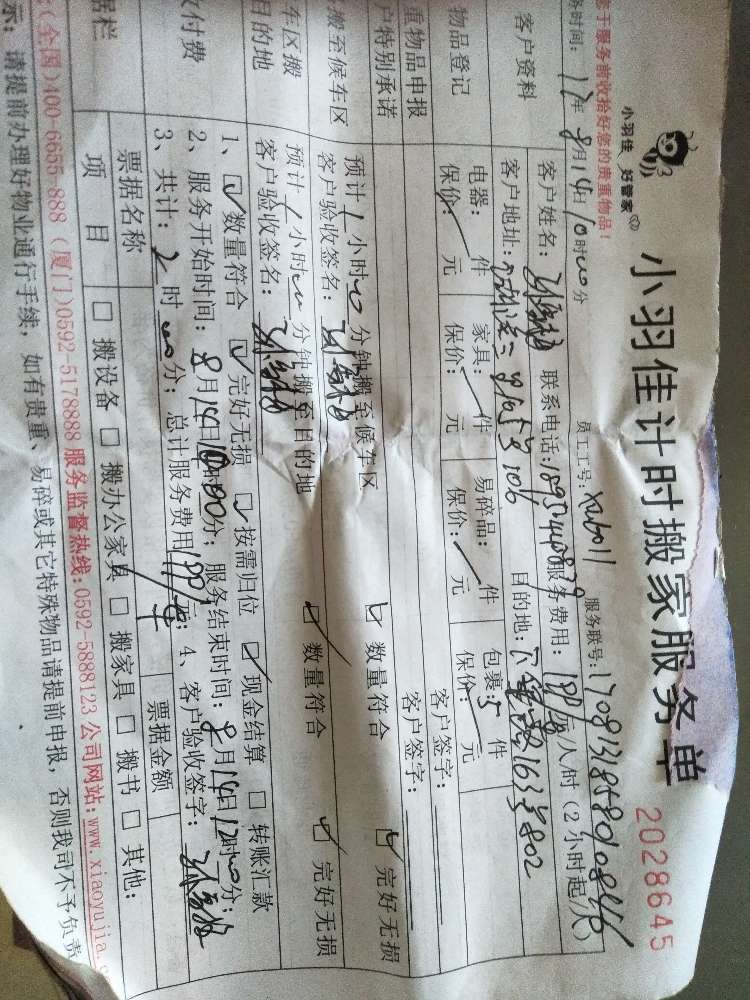 小羽佳 好管家
小羽佳计时搬家服务单
2028645
于服务前收拾好您的贵重物品!
员工工号: xab011 服务联号:
时间: 17年 8月14日10时00分
客户资料
客户姓名: 联系电话: 服务费用: 元/小时(2小时起/次)
客户地址: 目的地:
物品登记
电器: 件 家具: 件 易碎品: 件 包裹: 5 件
保价: 元 保价: 元 保价: 元 保价: 元
重物品申报 客户签字:
户特别承诺 客户签字:
搬至候车区
预计1小时0分钟搬至候车区 数量符合 完好无损
客户验收签名:
车区搬
目的地
预计1小时00分钟搬至目的地 数量符合 完好无损
客户验收签名:
付费
1、数量符合 完好无损 按需归位 现金结算 转账汇款
2、服务开始时间: 8月14日10时00分; 服务结束时间: 8月14日12时00分;
3、共计: 2时00分; 总计服务费用 元; 4、客户验收签字:
据栏
票据名称 票据金额
项目 搬设备 搬办公家具 搬家具 搬书 其他:
(全国)400-6655-888 (厦门)0592-5178888 服务监督热线:0592-5888123 公司网站:www.xiaoyujia.c
示: 请提前办理好物业通行手续, 如有贵重、易碎或其它特殊物品请提前申报, 否则我司不予负责